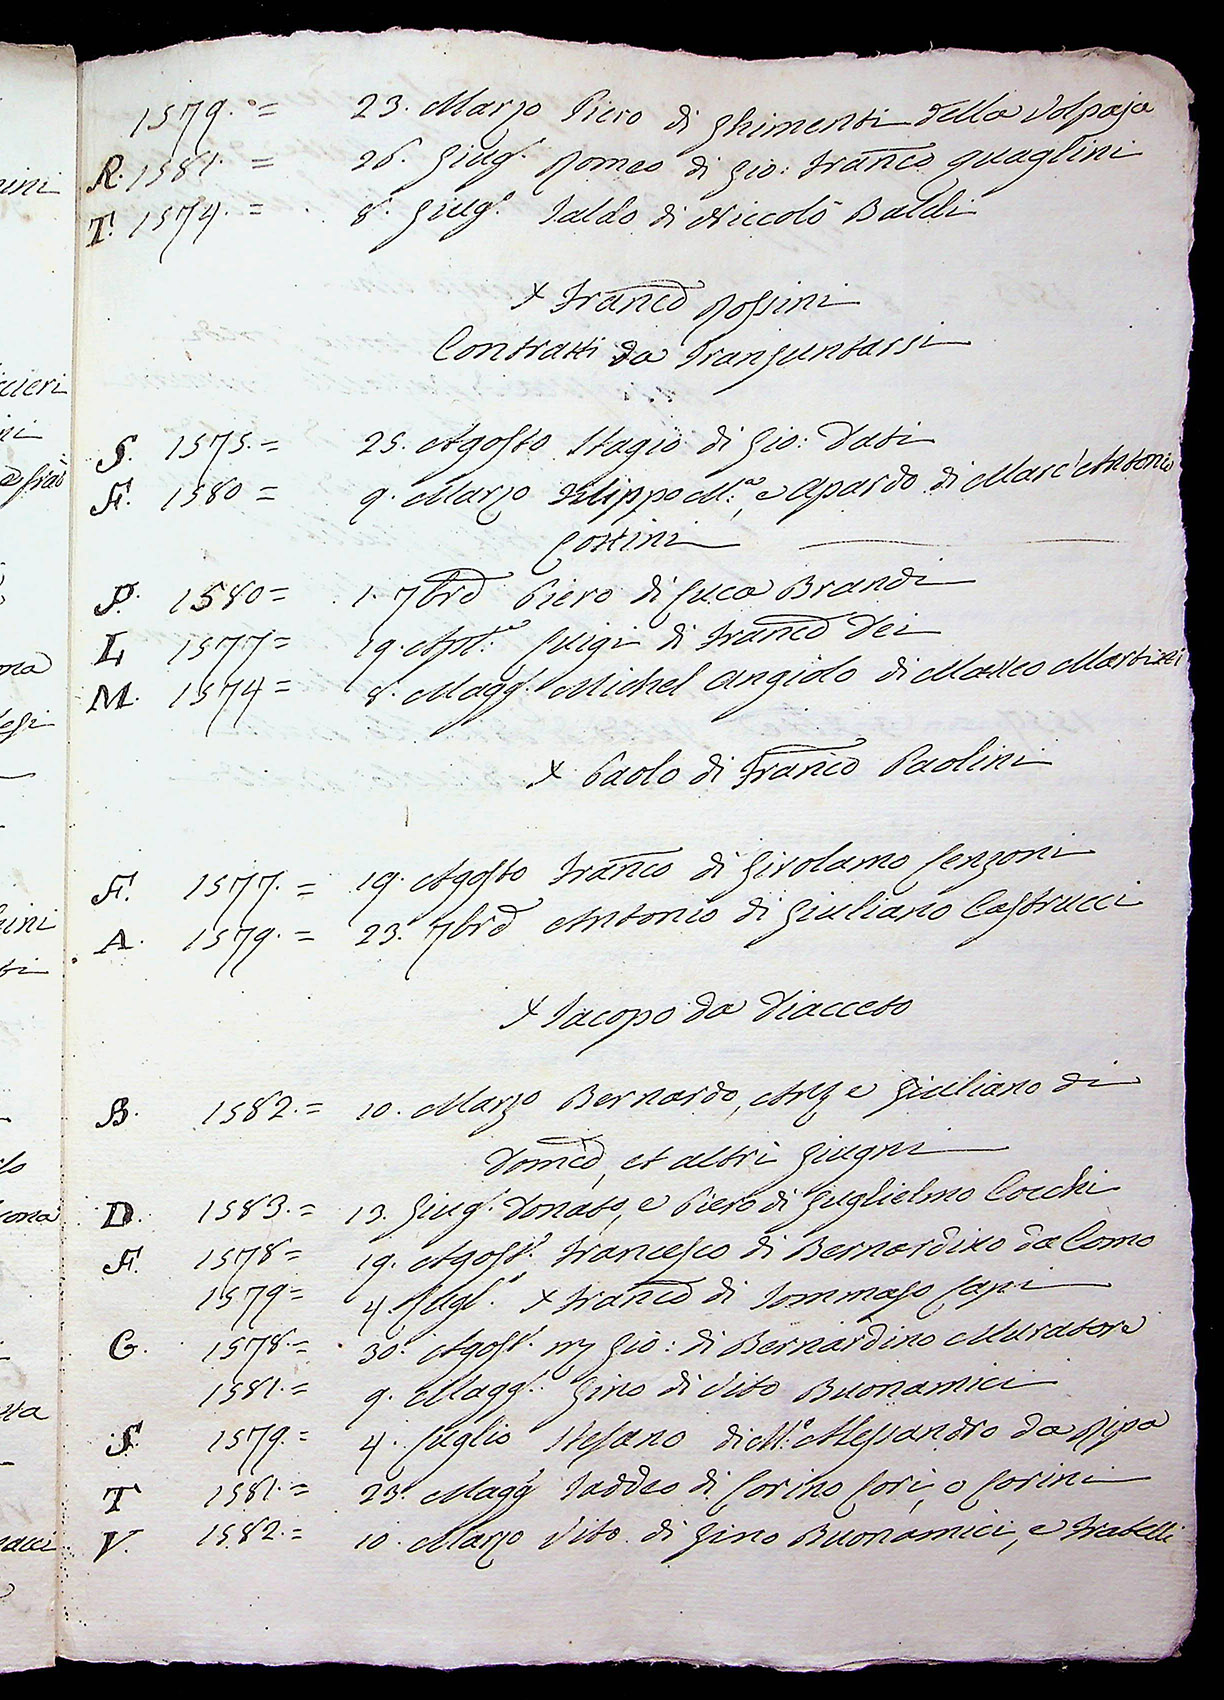 1579. = 23. Marzo Piero di Ghimenti della Volpaja
R. 1581. = 26. Giug.o Romeo di Gio: Franco Quaglini
T. 1574. = 8. Giug.o Taldo di Niccolò Baldi
+ Franco Rossini
Contratti da Transuntarsi
S. 1575. = 25. Agosto Stagio di Gio: Dati
F. 1580 = 9. Marzo Filippo M.a, e Apardo di Marc'Antonio
Cottini
P. 1580 = 1. 7bre Piero di Luca Brandi
L 1577 = 19. Luigi di Franco Dei
M. 1574 = 8. Magg.o Michel Angiolo di Matteo
+ Paolo di Franco Paolini
F. 1577. = 19. Agosto Franco di Girolamo Lenzoni
A. 1579. = 23. 7bre Antonio di Giuliano Castrucci
+ Iacopo da Diacceto
B. 1582. = 10. Marzo Bernardo, e Giuliano di
Domco, et altri Giugni
D. 1583. = 13. Giug.o Donato, e Piero di Guglielmo Cocchi
F. 1578 = 19. Agost.o Francesco di Bernardino da Como
1579 = 4. Lugl.o + Franco di Tommaso Lapi
G. 1578. = 30. Agost.o Gio: di Bernardino Muratore
1581. = 9. Magg.o Gino di Vito Buonamici
S. 1579. = 4. Luglio Stefano di M.o Alessandro da Ripa
T 1581. = 23. Magg.o Taddeo di Corino Cori, o Corini
V. 1582. = 10. Marzo Vito di Gino Buonamici, e Fratelli